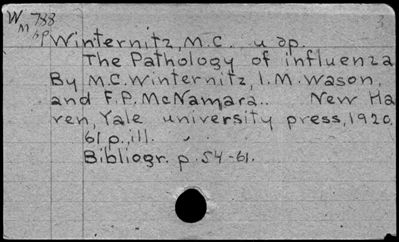 W 788
м др
3
Winternitz, M.C. и др.
The Pathology of influenza
By M.C. Winternitz, I.M. Wason,
and F.P. McNamara.. New Ha
ven, Yale university press, 1920.
61 p., ill.
Bibliogr. p. 54-61.